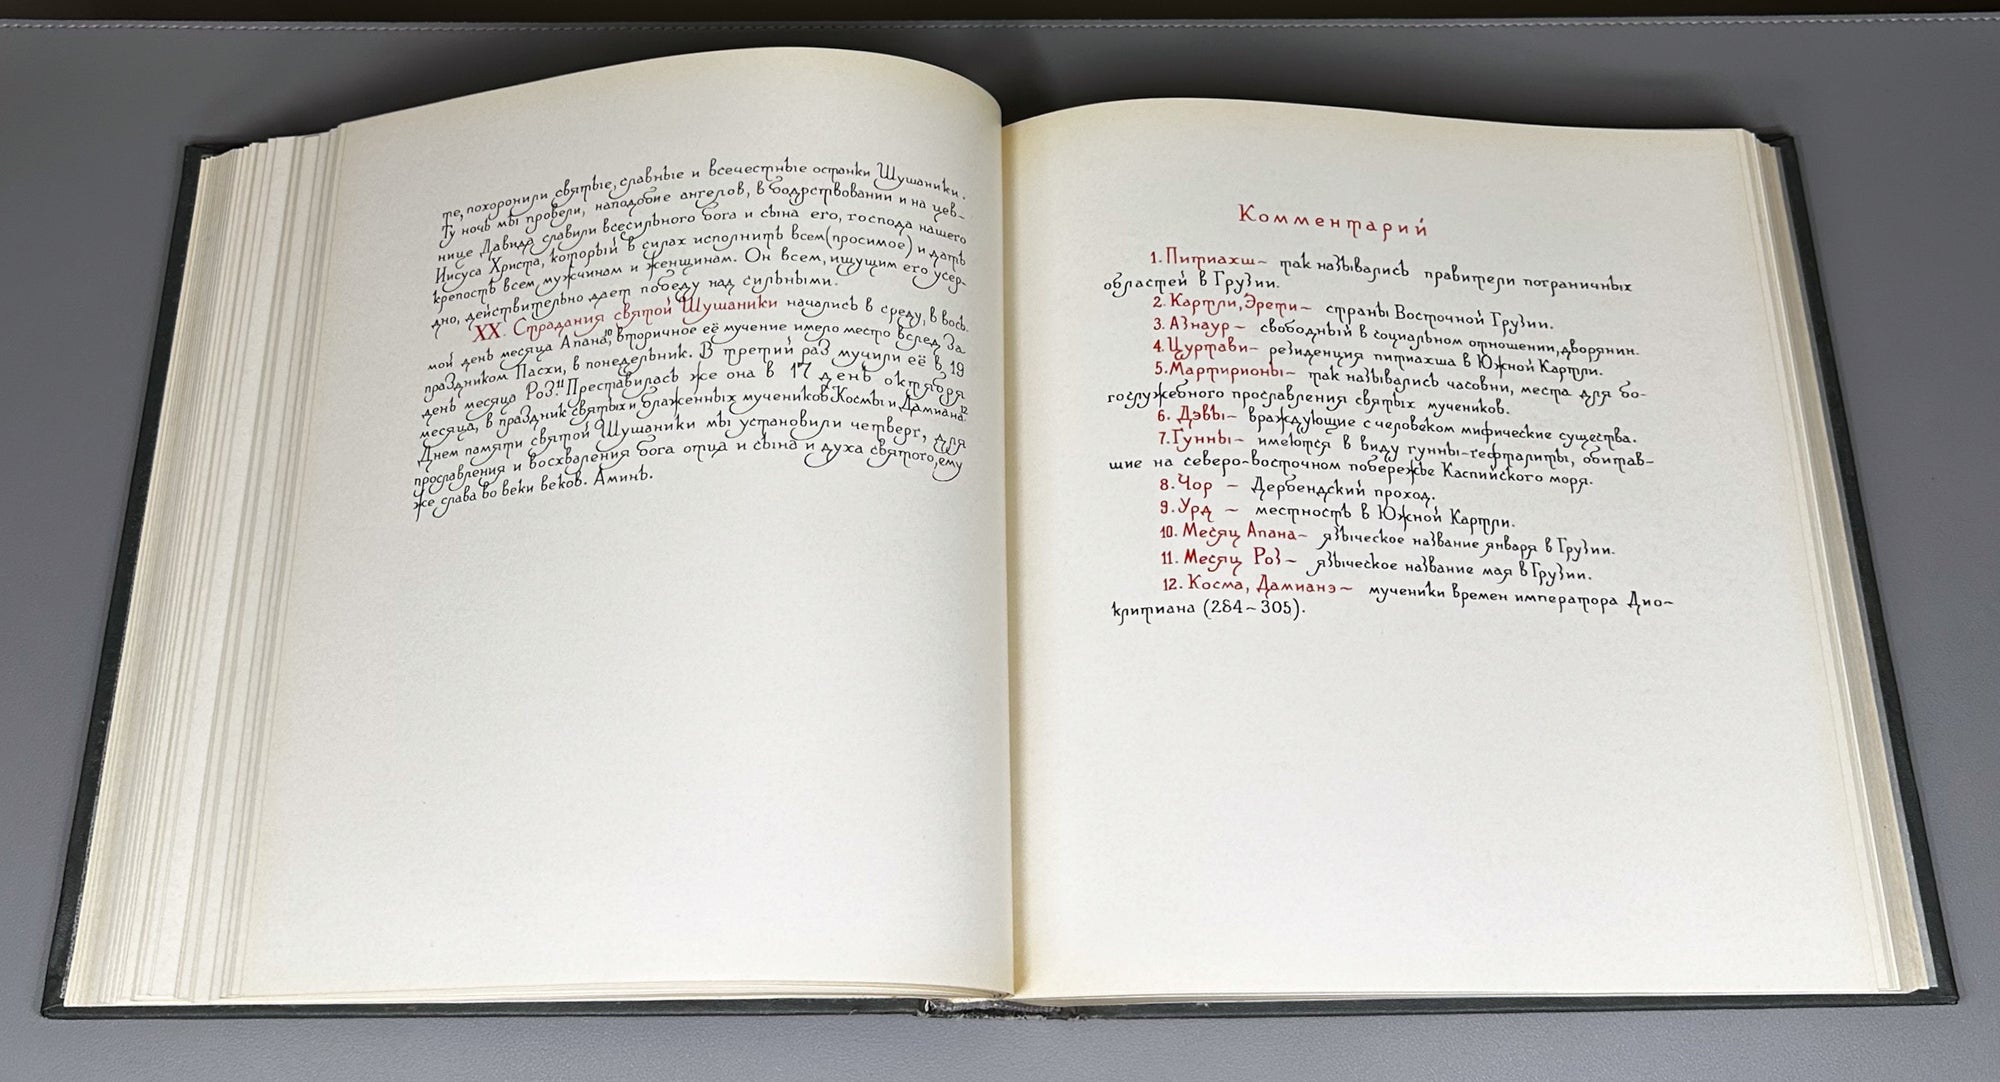 те, похоронили святые, славные и всечестные останки Шушаники.
Ту ночь мы провели, наподобие ангелов, в бодрствовании и на цев-
нице Давида славили всесильного бога и сына его, господа нашего
Иисуса Христа, который в силах исполнить всем (просимое) и дать
крепость всем мужчинам и женщинам. Он всем, ищущим его усер-
дно, действительно дает победу над сильными.
XX. Страдания святой Шушаники начались в среду, в вось-
мой день месяца Апана,10 вторичное её мучение имело место вслед за
праздником Пасхи, в понедельник. В третий раз мучили её в 19
день месяца Роз.11 Преставилась же она в 17 день октября
месяца, в праздник святых и блаженных мучеников Космы и Дамиана.12
Днем памяти святой Шушаники мы установили четверг, для
прославления и восхваления бога отца и сына и духа святого, ему
же слава во веки веков. Аминь.
Комментарий
1. Питиахш – так назывались правители пограничных
областей в Грузии.
2. Картли, Эрети – страны Восточной Грузии.
3. Азнаур – свободный в социальном отношении, дворянин.
4. Цуртави – резиденция питиахша в Южной Картли.
5. Мартирионы – так назывались часовни, места для бо-
гослужебного прославления святых мучеников.
6. Дэвы – враждующие с человеком мифические существа.
7. Гунны – имеются в виду гунны-гефталиты, обитав-
шие на северо-восточном побережье Каспийского моря.
8. Чор – Дербендский проход.
9. Урд – местность в Южной Картли.
10. Месяц Апана – языческое название января в Грузии.
11. Месяц Роз – языческое название мая в Грузии.
12. Косма, Дамианэ – мученики времен императора Дио-
клитиана (284–305).